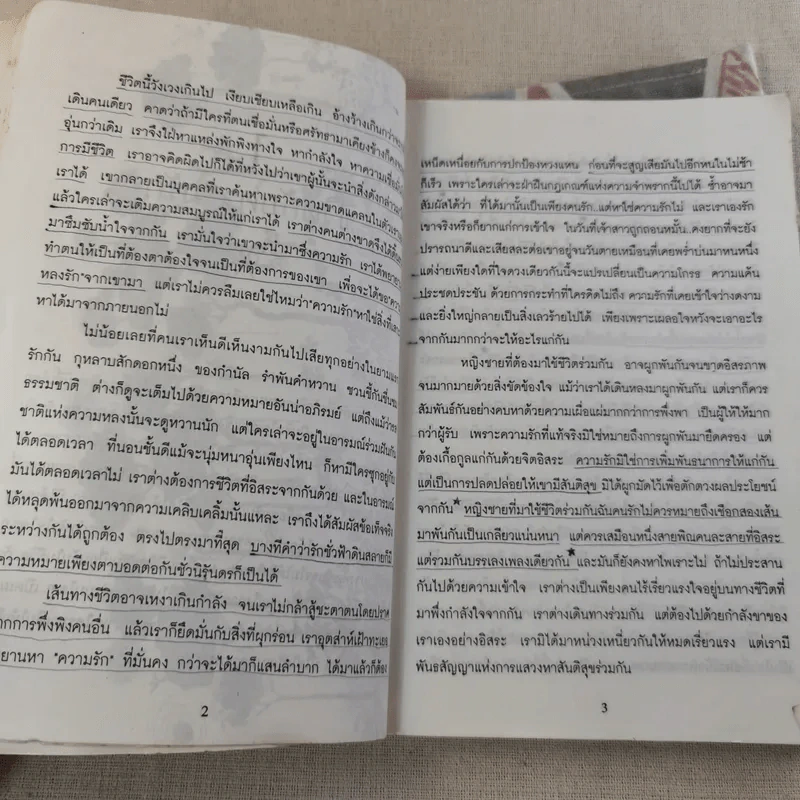 ชีวิตนี้วังเวงเกินไป เงียบเชียบเหลือเกิน อ้างว้างเกินกว่าจะ
เดินคนเดียว คาดว่าถ้ามีใครที่ตนเชื่อมั่นหรือศรัทธามาเคียงข้างก็คง
อุ่นกว่าเดิม เราจึงใฝ่หาแหล่งพักพิงทางใจ หากำลังใจ หาความเชื่อมั่น
การมีชีวิต เราอาจคิดผิดไปก็ได้ที่หวังไปว่าเขาผู้นั้นจะนำสิ่งดังกล่าวมา
เราได้ เขากลายเป็นบุคคลที่เราค้นหาเพราะความขาดแคลนในตัวเรา
แล้วใครเล่าจะเติมความสมบูรณ์ให้แก่เราได้ เราต่างคนต่างขาดจึงได้
มาซึมซับน้ำใจจากกัน เรามั่นใจว่าเขาจะนำมาซึ่งความรัก เราได้พยายาม
ทำตนให้เป็นที่ต้องตาต้องใจจนเป็นที่ต้องการของเขา เพื่อจะได้ขอ"ความ
หลงรัก"จากเขามา แต่เราไม่ควรลืมเลยใช่ไหมว่า"ความรัก"หาใช่สิ่งที่
หาได้มาจากภายนอกไม่
ไม่น้อยเลยที่คนเราเห็นดีเห็นงามกันไปเสียทุกอย่างในยาม
รักกัน กุหลาบสักดอกหนึ่ง ของกำนัล รำพันคำหวาน ชวนชี้กันชื่นชม
ธรรมชาติ ต่างก็ดูจะเต็มไปด้วยความหมายอันน่าอภิรมย์ แต่ถึงแม้ว่า
ชาติแห่งความหลงนั้นจะดูหวานนัก แต่ใครเล่าจะอยู่ในอารมณ์ร่วมฝันกัน
ได้ตลอดเวลา ที่นอนชั้นดีแม้จะนุ่มหนาอุ่นเพียงไหน ก็หามีใครซุกอยู่กับ
มันได้ตลอดเวลาไม่ เราต่างต้องการชีวิตที่อิสระจากกันด้วย และในอารมณ์
ได้หลุดพ้นออกมาจากความเคลิบเคลิ้มนั้นแหละ เราถึงได้สัมผัสข้อเท็จจริง
ระหว่างกันได้ถูกต้อง ตรงไปตรงมาที่สุด บางทีคำว่ารักชั่วฟ้าดินสลายก็มี
ความหมายเพียงตาบอดต่อกันชั่วนิรันดรก็เป็นได้
เส้นทางชีวิตอาจเหงาเกินกำลัง จนเราไม่กล้าสู้ชะตาตนโดยปราศ
จากการพึ่งพิงคนอื่น แล้วเราก็ยึดมั่นกับสิ่งที่ผุกร่อน เราอุตส่าห์เฝ้าทะเยอ
ทะยานหา "ความรัก" ที่มั่นคง กว่าจะได้มาก็แสนลำบาก ได้มาแล้วก็ต้อง
2
เหนื่ดเหนื่อยกับการปกป้องหวงแหน ก่อนที่จะสูญเสียมันไปอีกหนในไม่ช้า
ก็เร็ว เพราะใครเล่าจะฝ่าฝืนกฎเกณฑ์แห่งความจำพรากนี้ไปได้ ซ้ำอาจมา
สัมผัสได้ว่า ที่ได้มานั้นเป็นเพียงคนรัก แต่หาใช่ความรักไม่ และเราเองรัก
เขาจริงหรือก็ยากแก่การเข้าใจ ในวันที่เจ้าสาวถูกถอนหมั้น คงยากที่จะยัง
ปรารถนาดีและเสียสละต่อเขาอยู่จนวันตายเหมือนที่เคยพร่ำบ่นมาหนหนึ่ง
แต่ง่ายเพียงใดที่ใจดวงเดียวกันนี้จะแปรเปลี่ยนเป็นความโกรธ ความแค้น
ประชดประชัน ด้วยการกระทำที่ใครคิดไม่ถึง ความรักที่เคยเข้าใจว่างดงาม
และยิ่งใหญ่กลายเป็นสิ่งเลวร้ายไปได้ เพียงเพราะเผลอใจหวังจะเอาอะไร
จากกันมากกว่าจะให้อะไรแก่กัน
หญิงชายที่ต้องมาใช้ชีวิตร่วมกัน อาจผูกพันกันจนขาดอิสรภาพ
จนมากมายด้วยสิ่งขัดข้องใจ แม้ว่าเราได้เดินหลงมาผูกพันกัน แต่เราก็ควร
สัมพันธ์กันอย่างคบหาด้วยความเผื่อแผ่มากกว่าการพึ่งพา เป็นผู้ให้ให้มาก
กว่าผู้รับ เพราะความรักที่แท้จริงมิใช่หมายถึงการผูกพันมายึดครอง แต่
ต้องเกื้อกูลแก่กันด้วยจิตอิสระ ความรักมิใช่การเพิ่มพันธนาการให้แก่กัน
แต่เป็นการปลดปล่อยให้เขามีสันติสุข มิได้ผูกมัดไว้เพื่อตักตวงผลประโยชน์
จากกัน* หญิงชายที่มาใช้ชีวิตร่วมกันฉันคนรักไม่ควรหมายถึงเชือกสองเส้น
มาพันกันเป็นเกลียวแน่นหนา แต่ควรเสมือนหนึ่งสายพิณคนละสายที่อิสระ
แต่รวมกันบรรเลงเพลงเดียวกัน* และมันก็ยังคงหาไพเราะไม่ ถ้าไม่ประสาน
กันไปด้วยความเข้าใจ เราต่างเป็นเพียงคนไร้เรี่ยวแรงใจอยู่บนทางชีวิตที่
มาพึ่งกำลังใจจากกัน เราต่างเดินทางร่วมกัน แต่ต้องไปด้วยกำลังขาของ
เราเองอย่างอิสระ เรามิได้มาหน่วงเหนี่ยวกันให้หมดเรี่ยวแรง แต่เรามี
พันธสัญญาแห่งการแสวงหาสันติสุขร่วมกัน
3